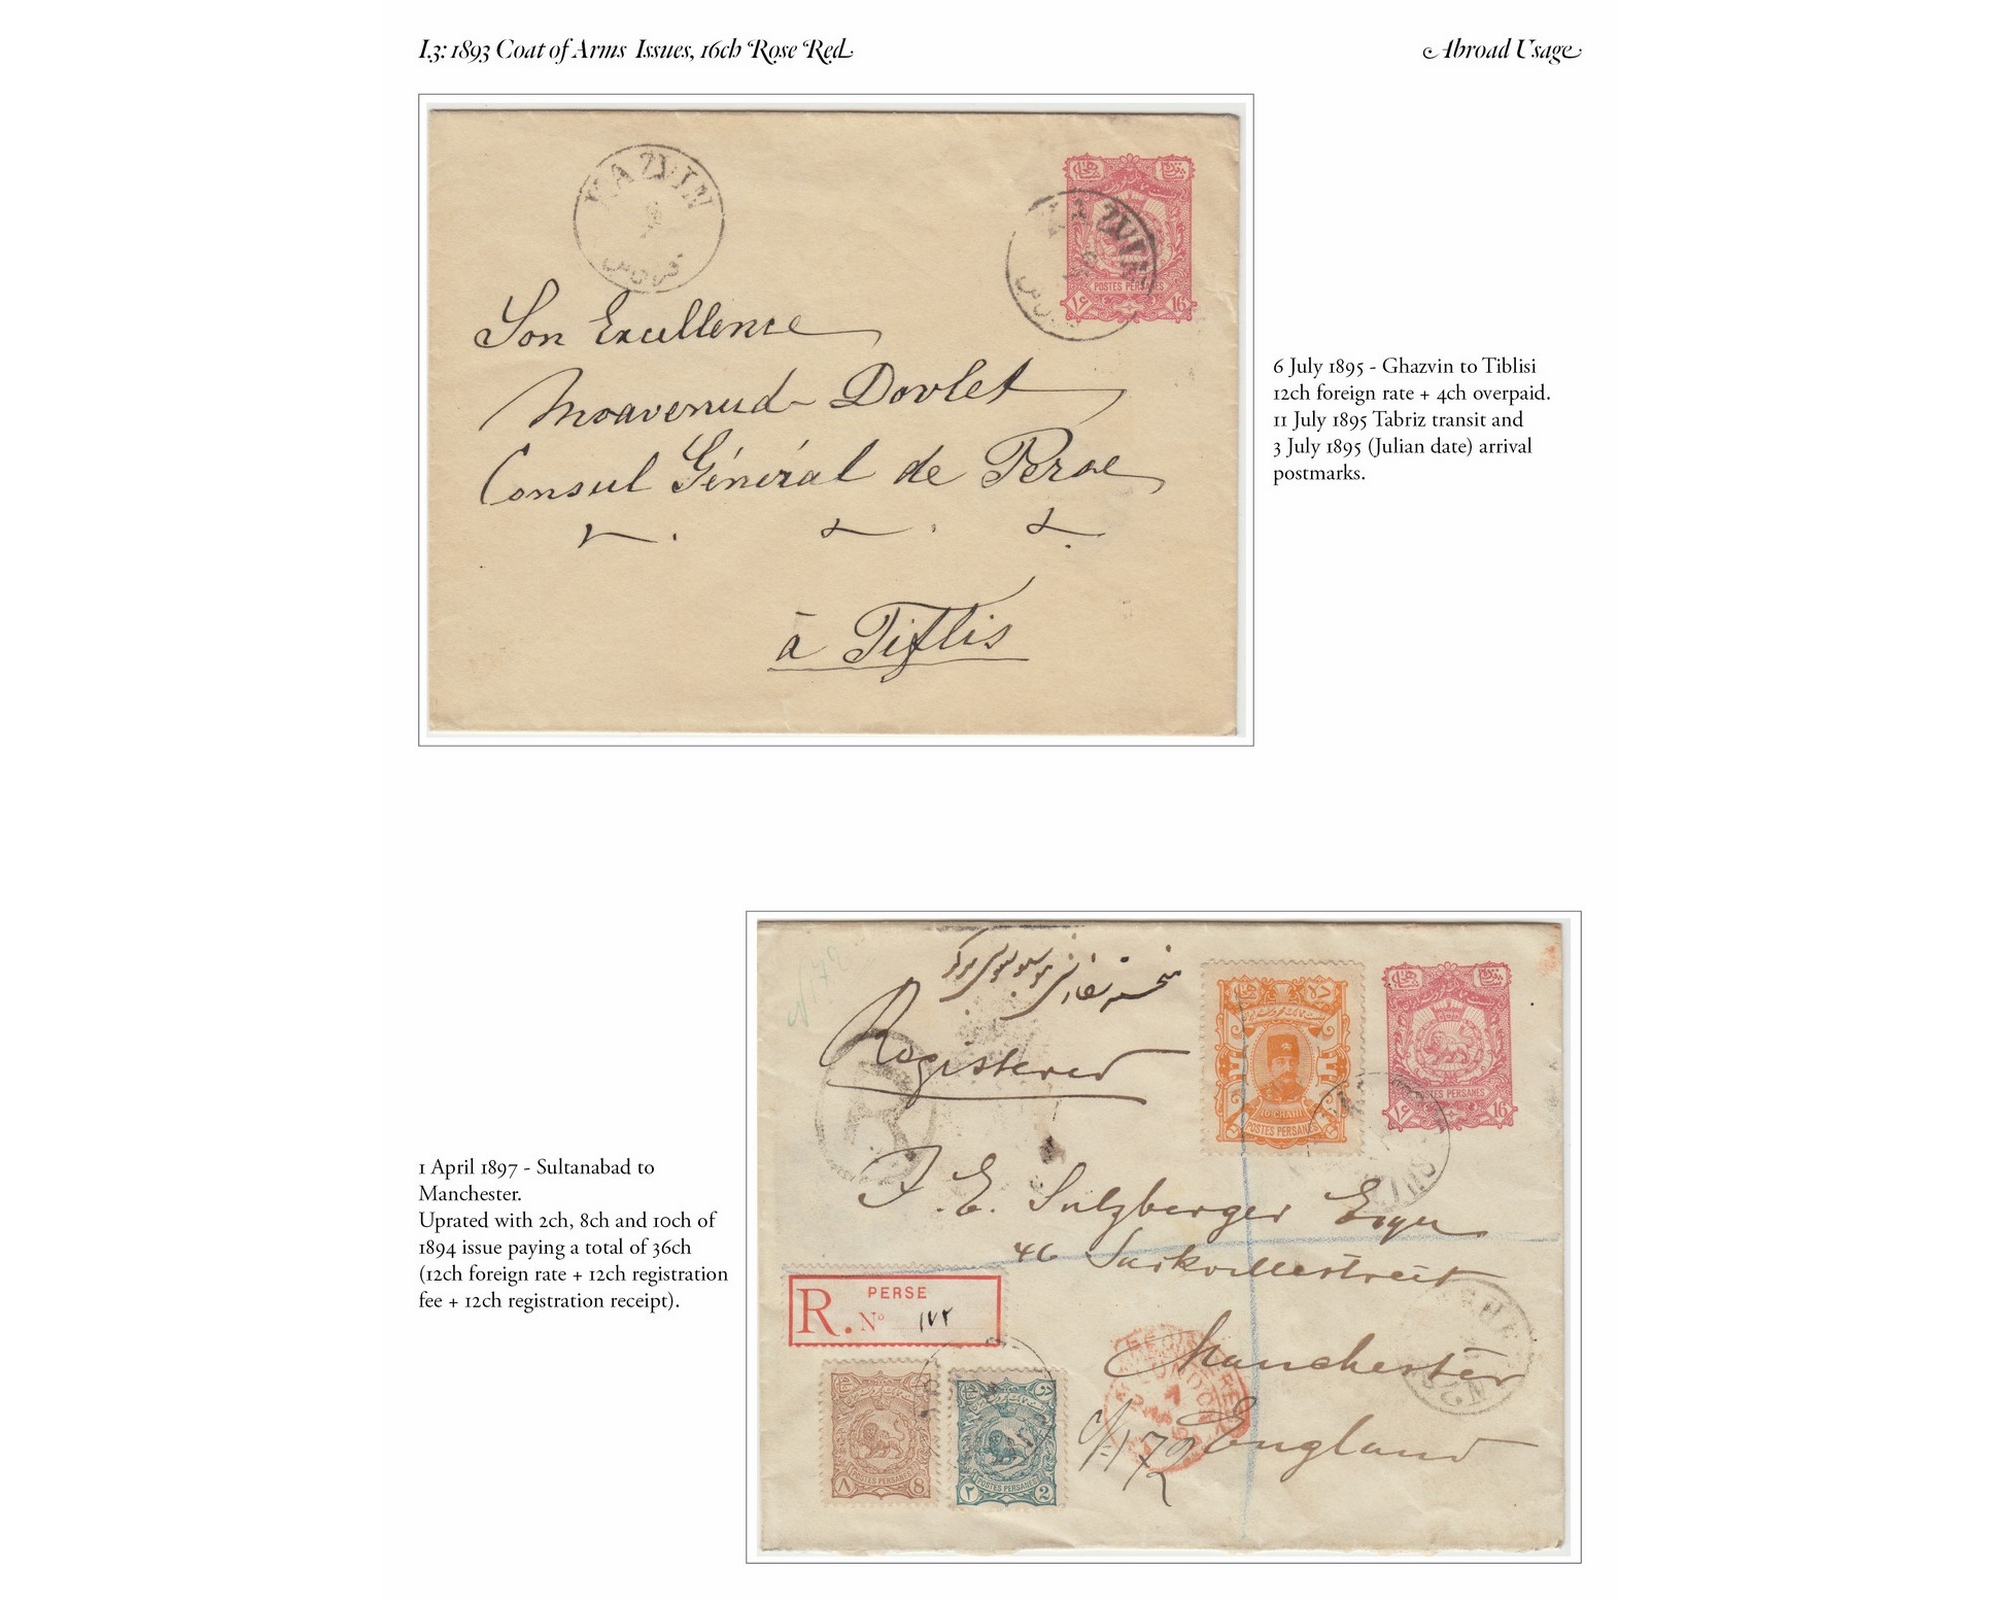 I.3: 1893 Coat of Arms Issues, 16ch Rose Red
Abroad Usage
KAZVIN
KAZVIN
POSTES PERSANES
۱۶ 16
Son Excellence
Moavenud-Dovlet
Consul Général de Perse
à Tiflis
6 July 1895 - Ghazvin to Tiblisi
12ch foreign rate + 4ch overpaid.
11 July 1895 Tabriz transit and
3 July 1895 (Julian date) arrival
postmarks.
1 April 1897 - Sultanabad to
Manchester.
Uprated with 2ch, 8ch and 10ch of
1894 issue paying a total of 36ch
(12ch foreign rate + 12ch registration
fee + 12ch registration receipt).
N172
Registered
R
10 CHAHI
POSTES PERSANES
POSTES PERSANES
۱۶ 16
J. E. Sulzberger Esqu
46 Sackvillestreet
Manchester
England
PERSE
R. No ۱۷۲
REGISTERED
LONDON
172
POSTES PERSANES
۸ 8
POSTES PERSANES
۲ 2